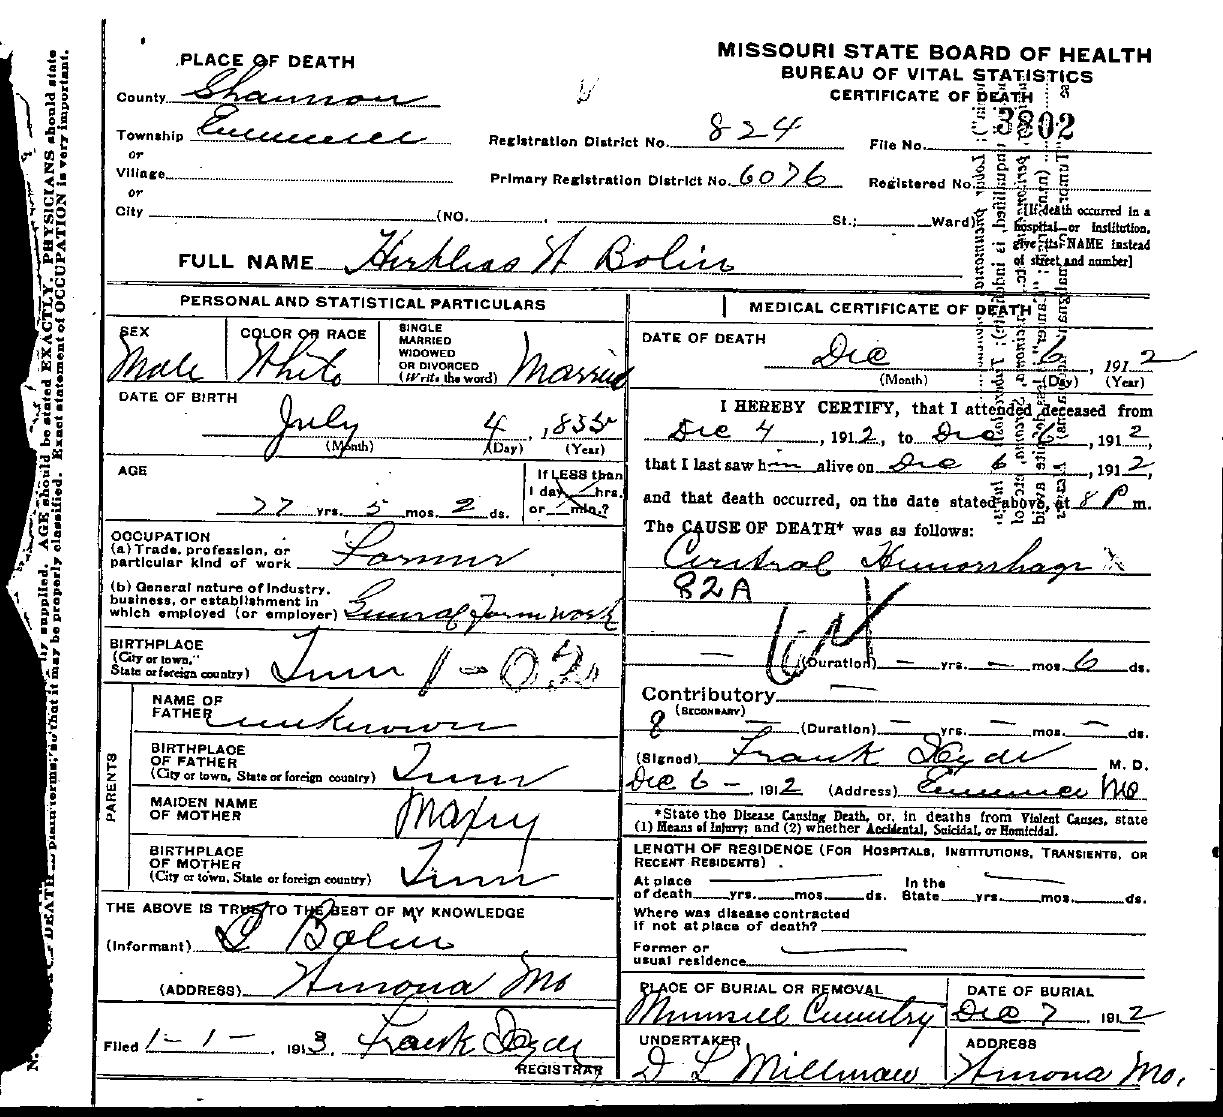 MISSOURI STATE BOARD OF HEALTH
BUREAU OF VITAL STATISTICS
CERTIFICATE OF DEATH
PLACE OF DEATH
County Shannon
Township
or
Village
or
City (NO. St.; Ward)
Registration District No. 824
File No. 3802
Primary Registration District No. 6076
Registered No.
[If death occurred in a
hospital or institution,
give its NAME instead
of street and number]
FULL NAME W Bolin
PERSONAL AND STATISTICAL PARTICULARS
SEX
Male
COLOR OR RACE
White
SINGLE
MARRIED
WIDOWED
OR DIVORCED
(Write the word) Married
DATE OF BIRTH
July 4, 1835
(Month) (Day) (Year)
AGE
77 yrs. 5 mos. 2 ds.
If LESS than
1 day, hrs.
or min.?
OCCUPATION
(a) Trade, profession, or
particular kind of work Farmer
(b) General nature of industry,
business, or establishment in
which employed (or employer) General Farm work
BIRTHPLACE
(City or town,
State or foreign country) Tenn
NAME OF
FATHER unknown
BIRTHPLACE
OF FATHER
(City or town, State or foreign country) Tenn
MAIDEN NAME
OF MOTHER
BIRTHPLACE
OF MOTHER
(City or town, State or foreign country) Tenn
PARENTS
THE ABOVE IS TRUE TO THE BEST OF MY KNOWLEDGE
(Informant) Bolin
(ADDRESS) Winona Mo
Filed 1-1-, 1913. Frank Hyde
REGISTRAR
MEDICAL CERTIFICATE OF DEATH
DATE OF DEATH
Dec 6, 1912
(Month) (Day) (Year)
I HEREBY CERTIFY, that I attended deceased from
Dec 4, 1912, to Dec 6, 1912,
that I last saw him alive on Dec 6, 1912,
and that death occurred, on the date stated above, at 8 P m.
The CAUSE OF DEATH* was as follows:
Hemorrhage
82A
(Duration) – yrs. – mos. 6 ds.
Contributory
(SECONDARY)
(Duration) – yrs. – mos. – ds.
(Signed) Frank Hyde M. D.
Dec 6 – 1912 (Address) Eminence Mo
*State the Disease Causing Death, or, in deaths from Violent Causes, state
(1) Means of Injury; and (2) whether Accidental, Suicidal, or Homicidal.
LENGTH OF RESIDENCE (FOR HOSPITALS, INSTITUTIONS, TRANSIENTS, OR
RECENT RESIDENTS)
At place
of death yrs. mos. ds.
In the
State yrs. mos. ds.
Where was disease contracted
if not at place of death?
Former or
usual residence
PLACE OF BURIAL OR REMOVAL
Munsell
DATE OF BURIAL
Dec 7, 1912
UNDERTAKER
D L Millman
ADDRESS
Winona Mo.
supplied. AGE should be stated EXACTLY. PHYSICIANS should state
DEATH in plain terms, so that it may be properly classified. Exact statement of OCCUPATION is very important.